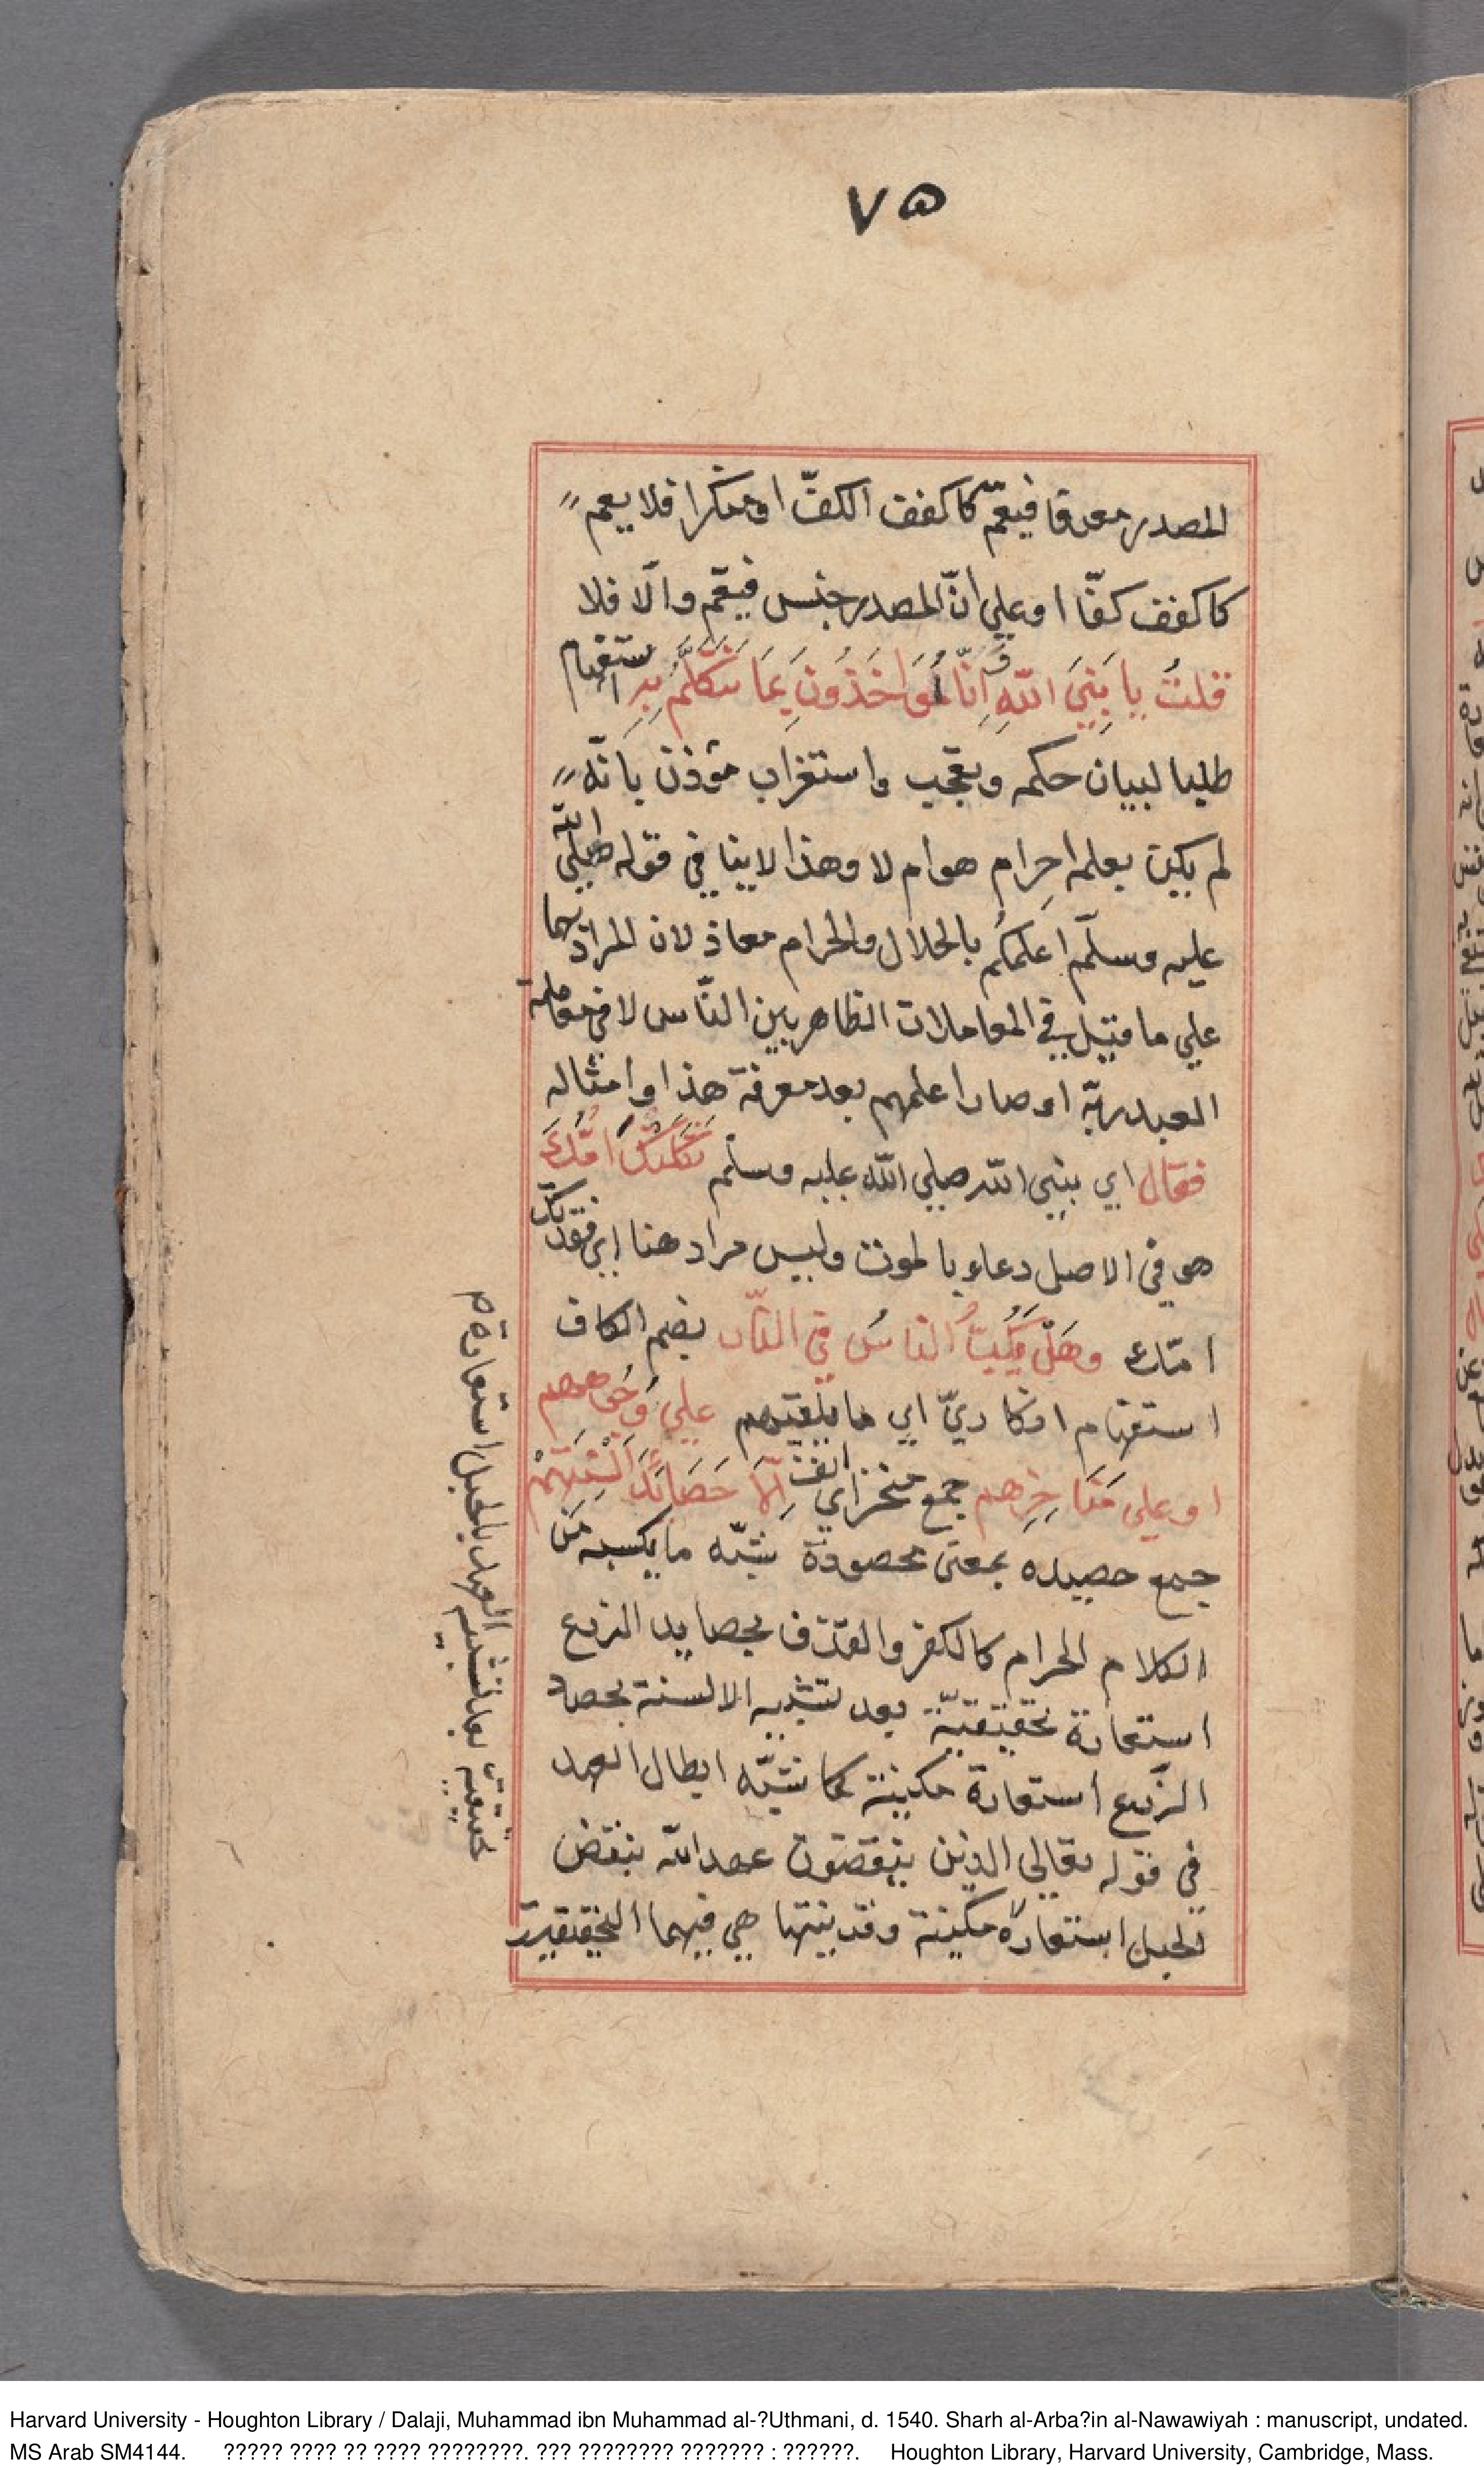 ٧٥
المصدر معرفا فيعمّ كاكفف الكفّ او منكرا فلا يعم
كاكفف كفّا او على انّ المصدر جنس فيعمّ والّا فلا
قلتُ يا نبيَ اللّه وَاِنَّا لمُوَاخَذُونَ بِمَا نَتَكَلَّمُ بِهِ استفهام
طلبا لبيان حكمه وتعجب واستغراب مؤذن بانّه
لم يكن يعلمه احرام هوام لا وهذا لا ينافي قوله صلى الله
عليه وسلّم اعلمكُم بالحلال والحرام معاذ لان المراد بهما
على ما قيل في المعاملات الظاهر بين النّاس لا في معاملة
العبد ربّه او صار اعلمهم بعد معرفة هذا وامثاله
فقال اي نبي اللّه صلى اللّه عليه وسلم ثَكِلَتْكَ اُمُّكَ
هو في الاصل دعاء بالموت وليس مراد هنا اي فقدتك
امّك وَهَلْ يَكُبُّ النّاسُ في النّار بضم الكاف
استفهام انكاريّ اي ما يلقيهم علىَ وُجُوههم
او على مَنَاخِرِهم جمع منخر اي انف اِلّا حَصَائدَ اَلْسِنَتِهِمْ
جمع حصيده بمعنى محصودة شبّه ما يكسبه من
الكلام الحرام كالكفر والقذف بحصايد الزرع
استعارة تحقيقيّة بعد تشبيه الالسنة بحصاد
الزّرع استعارة مكينة كما شبّه ابطال العهد
في قوله تعالى الذين ينقضون عهد اللّه بنقض
الحبل استعارة مكينة وقد بينتها هي فيهما التحقيقية
تحقيقية بعد تشبيه العهد بالحبل استعارة م
Harvard University - Houghton Library / Dalaji, Muhammad ibn Muhammad al-?Uthmani, d. 1540. Sharh al-Arba?in al-Nawawiyah : manuscript, undated.
MS Arab SM4144. ????? ???? ?? ???? ????????. ??? ???????? ??????? : ??????. Houghton Library, Harvard University, Cambridge, Mass.